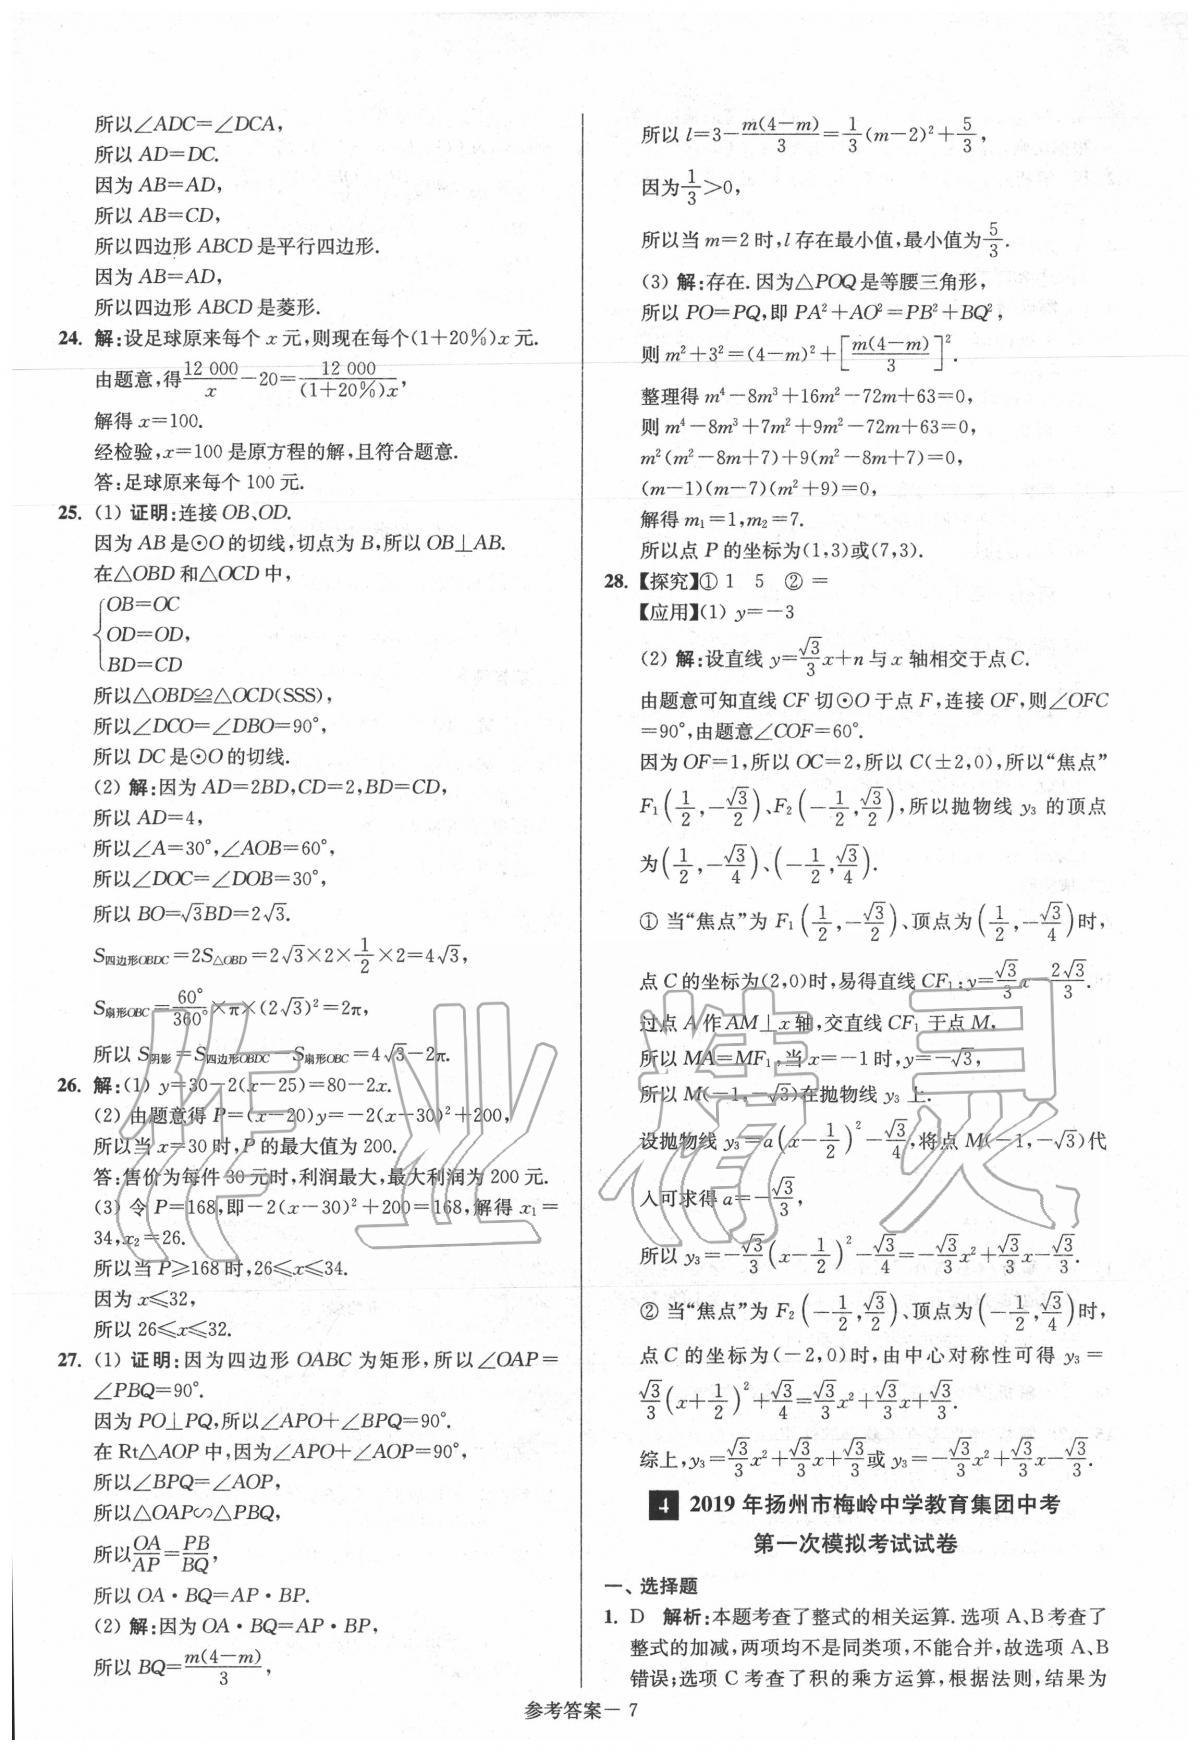 所以∠ADC=∠DCA,
所以 AD=DC.
因为 AB=AD,
所以 AB=CD,
所以四边形 ABCD 是平行四边形.
因为 AB=AD,
所以四边形 ABCD 是菱形.
24. 解:设足球原来每个 x 元,则现在每个(1+20%)x 元.
由题意,得12 000/x-20=12 000/((1+20%)x),
解得 x=100.
经检验,x=100 是原方程的解,且符合题意.
答:足球原来每个 100 元.
25. (1) 证明:连接 OB、OD.
因为 AB 是⊙O 的切线,切点为 B,所以 OB⊥AB.
在△OBD 和△OCD 中,
{OB=OC
OD=OD,
BD=CD
所以△OBD≌△OCD(SSS),
所以∠DCO=∠DBO=90°,
所以 DC 是⊙O 的切线.
(2) 解:因为 AD=2BD,CD=2,BD=CD,
所以 AD=4,
所以∠A=30°,∠AOB=60°,
所以∠DOC=∠DOB=30°,
所以 BO=√3BD=2√3.
S四边形OBDC=2S△OBD=2√3×2×1/2×2=4√3,
S扇形OBC=60°/360°×π×(2√3)²=2π,
所以 S阴影=S四边形OBDC-S扇形OBC=4√3-2π.
26. 解:(1) y=30-2(x-25)=80-2x.
(2) 由题意得 P=(x-20)y=-2(x-30)²+200,
所以当 x=30 时,P 的最大值为 200.
答:售价为每件 30 元时,利润最大,最大利润为 200 元.
(3) 令 P=168,即-2(x-30)²+200=168,解得 x₁=
34,x₂=26.
所以当 P≥168 时,26≤x≤34.
因为 x≤32,
所以 26≤x≤32.
27. (1) 证明:因为四边形 OABC 为矩形,所以∠OAP=
∠PBQ=90°.
因为 PO⊥PQ,所以∠APO+∠BPQ=90°.
在 Rt△AOP 中,因为∠APO+∠AOP=90°,
所以∠BPQ=∠AOP,
所以△OAP∽△PBQ,
所以OA/AP=PB/BQ,
所以 OA·BQ=AP·BP.
(2) 解:因为 OA·BQ=AP·BP,
所以 BQ=m(4-m)/3,
所以 l=3-m(4-m)/3=1/3(m-2)²+5/3,
因为1/3>0,
所以当 m=2 时,l 存在最小值,最小值为5/3.
(3) 解:存在.因为△POQ是等腰三角形,
所以 PO=PQ,即 PA²+AO²=PB²+BQ²,
则 m²+3²=(4-m)²+[m(4-m)/3]².
整理得 m⁴-8m³+16m²-72m+63=0,
则 m⁴-8m³+7m²+9m²-72m+63=0,
m²(m²-8m+7)+9(m²-8m+7)=0,
(m-1)(m-7)(m²+9)=0,
解得 m₁=1,m₂=7.
所以点 P 的坐标为(1,3)或(7,3).
28. 【探究】① 1 5 ② =
【应用】(1) y=-3
(2) 解:设直线 y=√3/3x+n 与 x 轴相交于点 C.
由题意可知直线 CF 切⊙O 于点 F,连接 OF,则∠OFC
=90°,由题意∠COF=60°.
因为 OF=1,所以 OC=2,所以 C(±2,0),所以“焦点”
F₁(1/2,-√3/2)、F₂(-1/2,√3/2),所以抛物线 y₃ 的顶点
为(1/2,-√3/4)、(-1/2,√3/4).
① 当“焦点”为 F₁(1/2,-√3/2)、顶点为(1/2,-√3/4)时,
点 C 的坐标为(2,0)时,易得直线 CF₁:y=√3/3x-2√3/3.
过点 A 作 AM⊥x 轴,交直线 CF₁ 于点 M.
所以 MA=MF₁,当 x=-1 时,y=-√3,
所以 M(-1,-√3)在抛物线 y₃ 上.
设抛物线 y₃=a(x-1/2)²-√3/4,将点 M(-1,-√3)代
入可求得 a=-√3/3,
所以 y₃=-√3/3(x-1/2)²-√3/4=-√3/3x²+√3/3x-√3/3.
② 当“焦点”为 F₂(-1/2,√3/2)、顶点为(-1/2,√3/4)时,
点 C 的坐标为(-2,0)时,由中心对称性可得 y₃=
√3/3(x+1/2)²+√3/4=√3/3x²+√3/3x+√3/3.
综上,y₃=√3/3x²+√3/3x+√3/3或 y₃=-√3/3x²+√3/3x-√3/3.
4 2019 年扬州市梅岭中学教育集团中考
第一次模拟考试试卷
一、选择题
1. D 解析:本题考查了整式的相关运算.选项 A、B 考查了
整式的加减,两项均不是同类项,不能合并,故选项 A、B
错误;选项 C 考查了积的乘方运算,根据法则,结果为
参考答案— 7
作业精灵